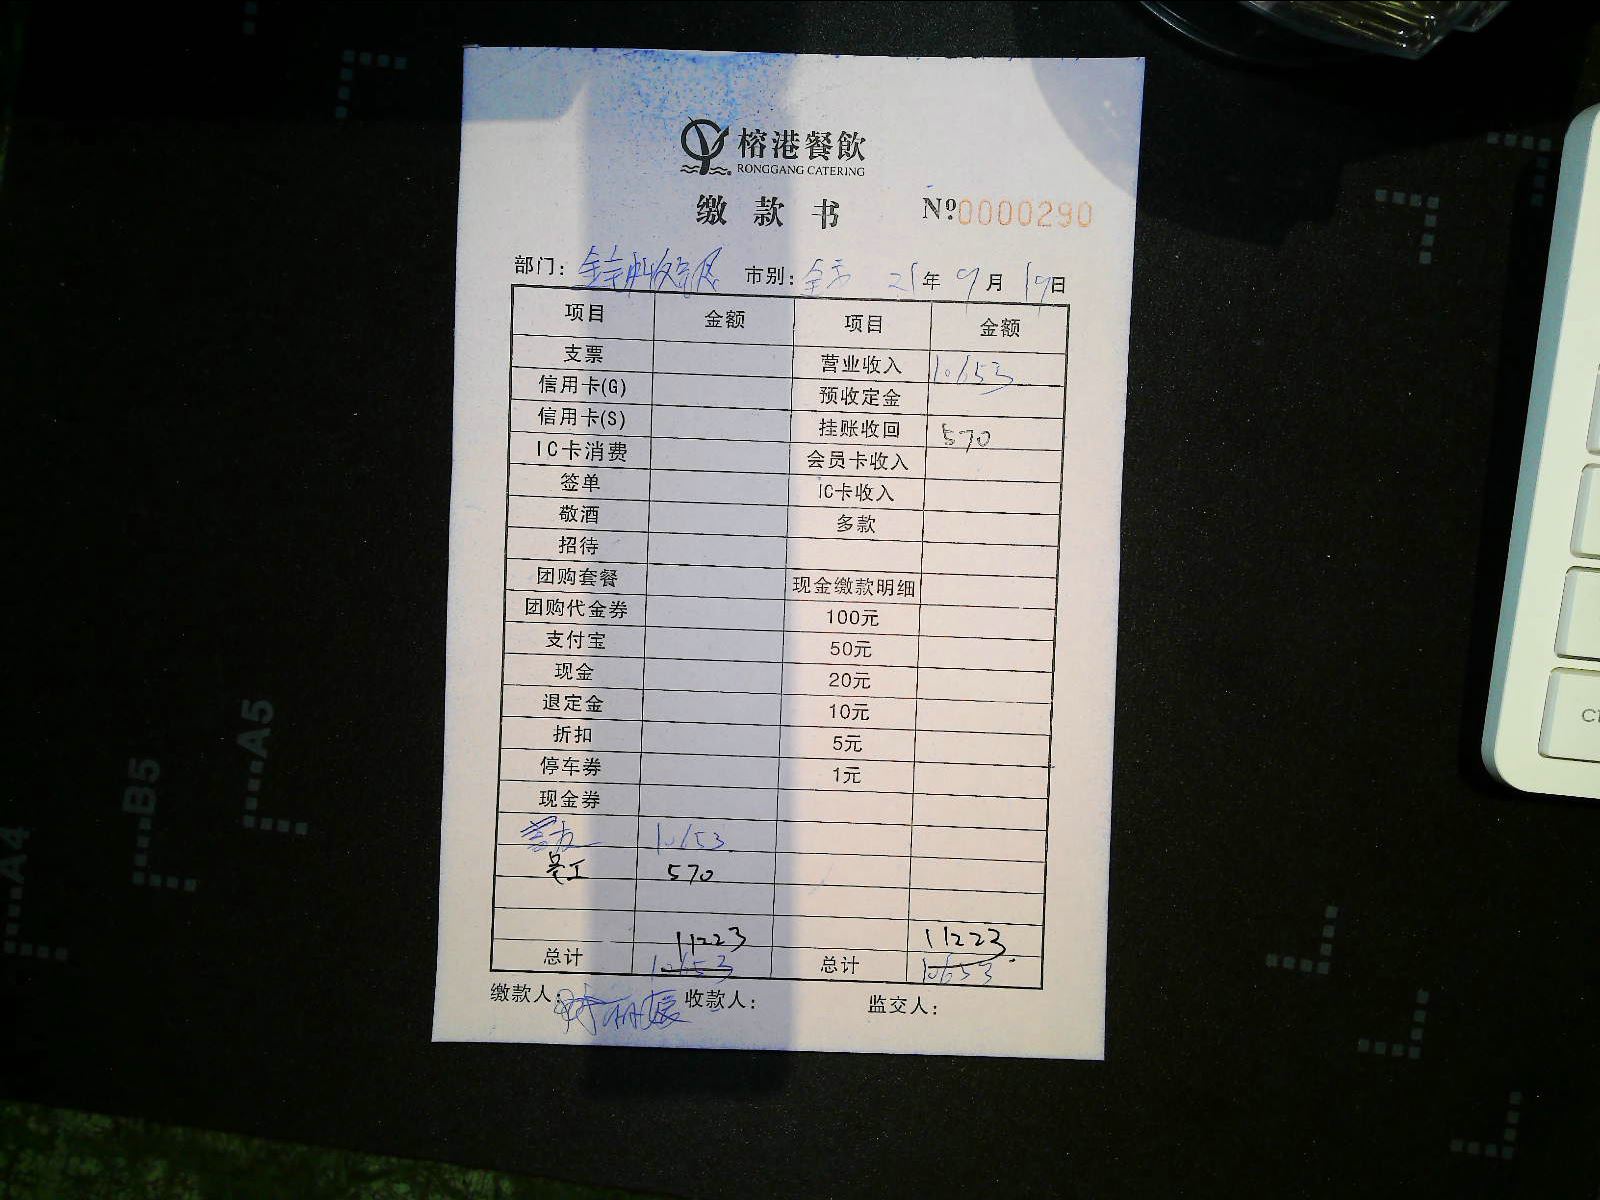 榕港餐飲
RONGGANG CATERING
缴款书 Nº0000290
部门: 市别: 21年9月19日
项目 金额 项目 金额
支票 营业收入 10653
信用卡(G) 预收定金
信用卡(S) 挂账收回 570
IC卡消费 会员卡收入
签单 IC卡收入
敬酒 多款
招待
团购套餐 现金缴款明细
团购代金券 100元
支付宝 50元
现金 20元
退定金 10元
折扣 5元
停车券 1元
现金券
10653
570
11223 11223
总计 10653 总计 10653
缴款人: 收款人: 监交人:
A4
B5
A5